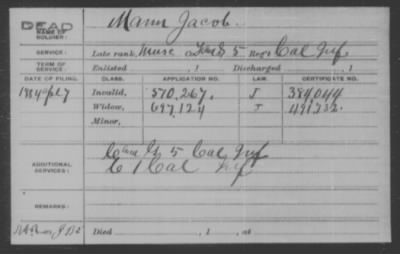 DEAD
NAME OF SOLDIER: Mann Jacob.
SERVICE: Late rank, Musc Co. 5 Reg't Cal Inf.
TERM OF SERVICE: Enlisted , 1 Discharged , 1
DATE OF FILING. CLASS. APPLICATION NO. LAW. CERTIFICATE NO.
Invalid, 570,267. J 384,044
Widow, 697,124 J 491,232.
Minor,
ADDITIONAL SERVICES: 5 Cal Inf
C 1 Cal Inf
REMARKS:
Died , 1 , at